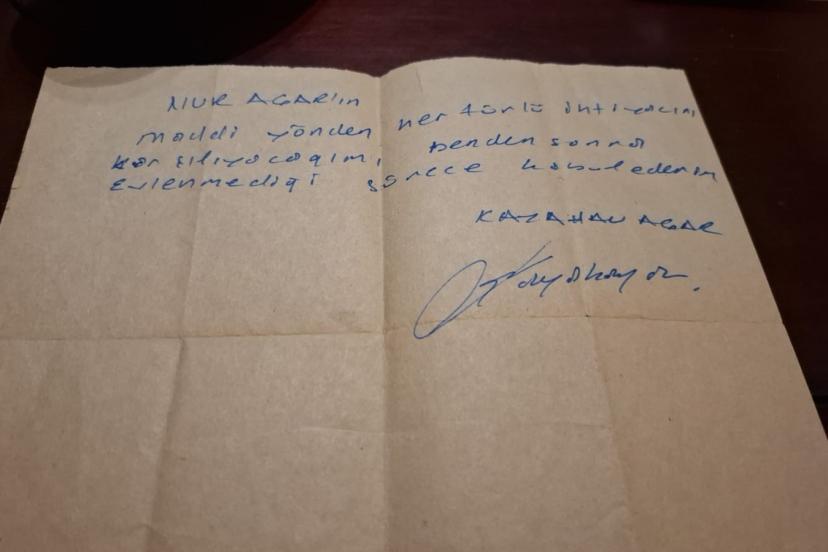 NUR AGAR'ın
maddi yönden her türlü ihtiyacını
karşılıyacağım, benden sonra
Evlenmediği sürece kabul ederim
AGAR